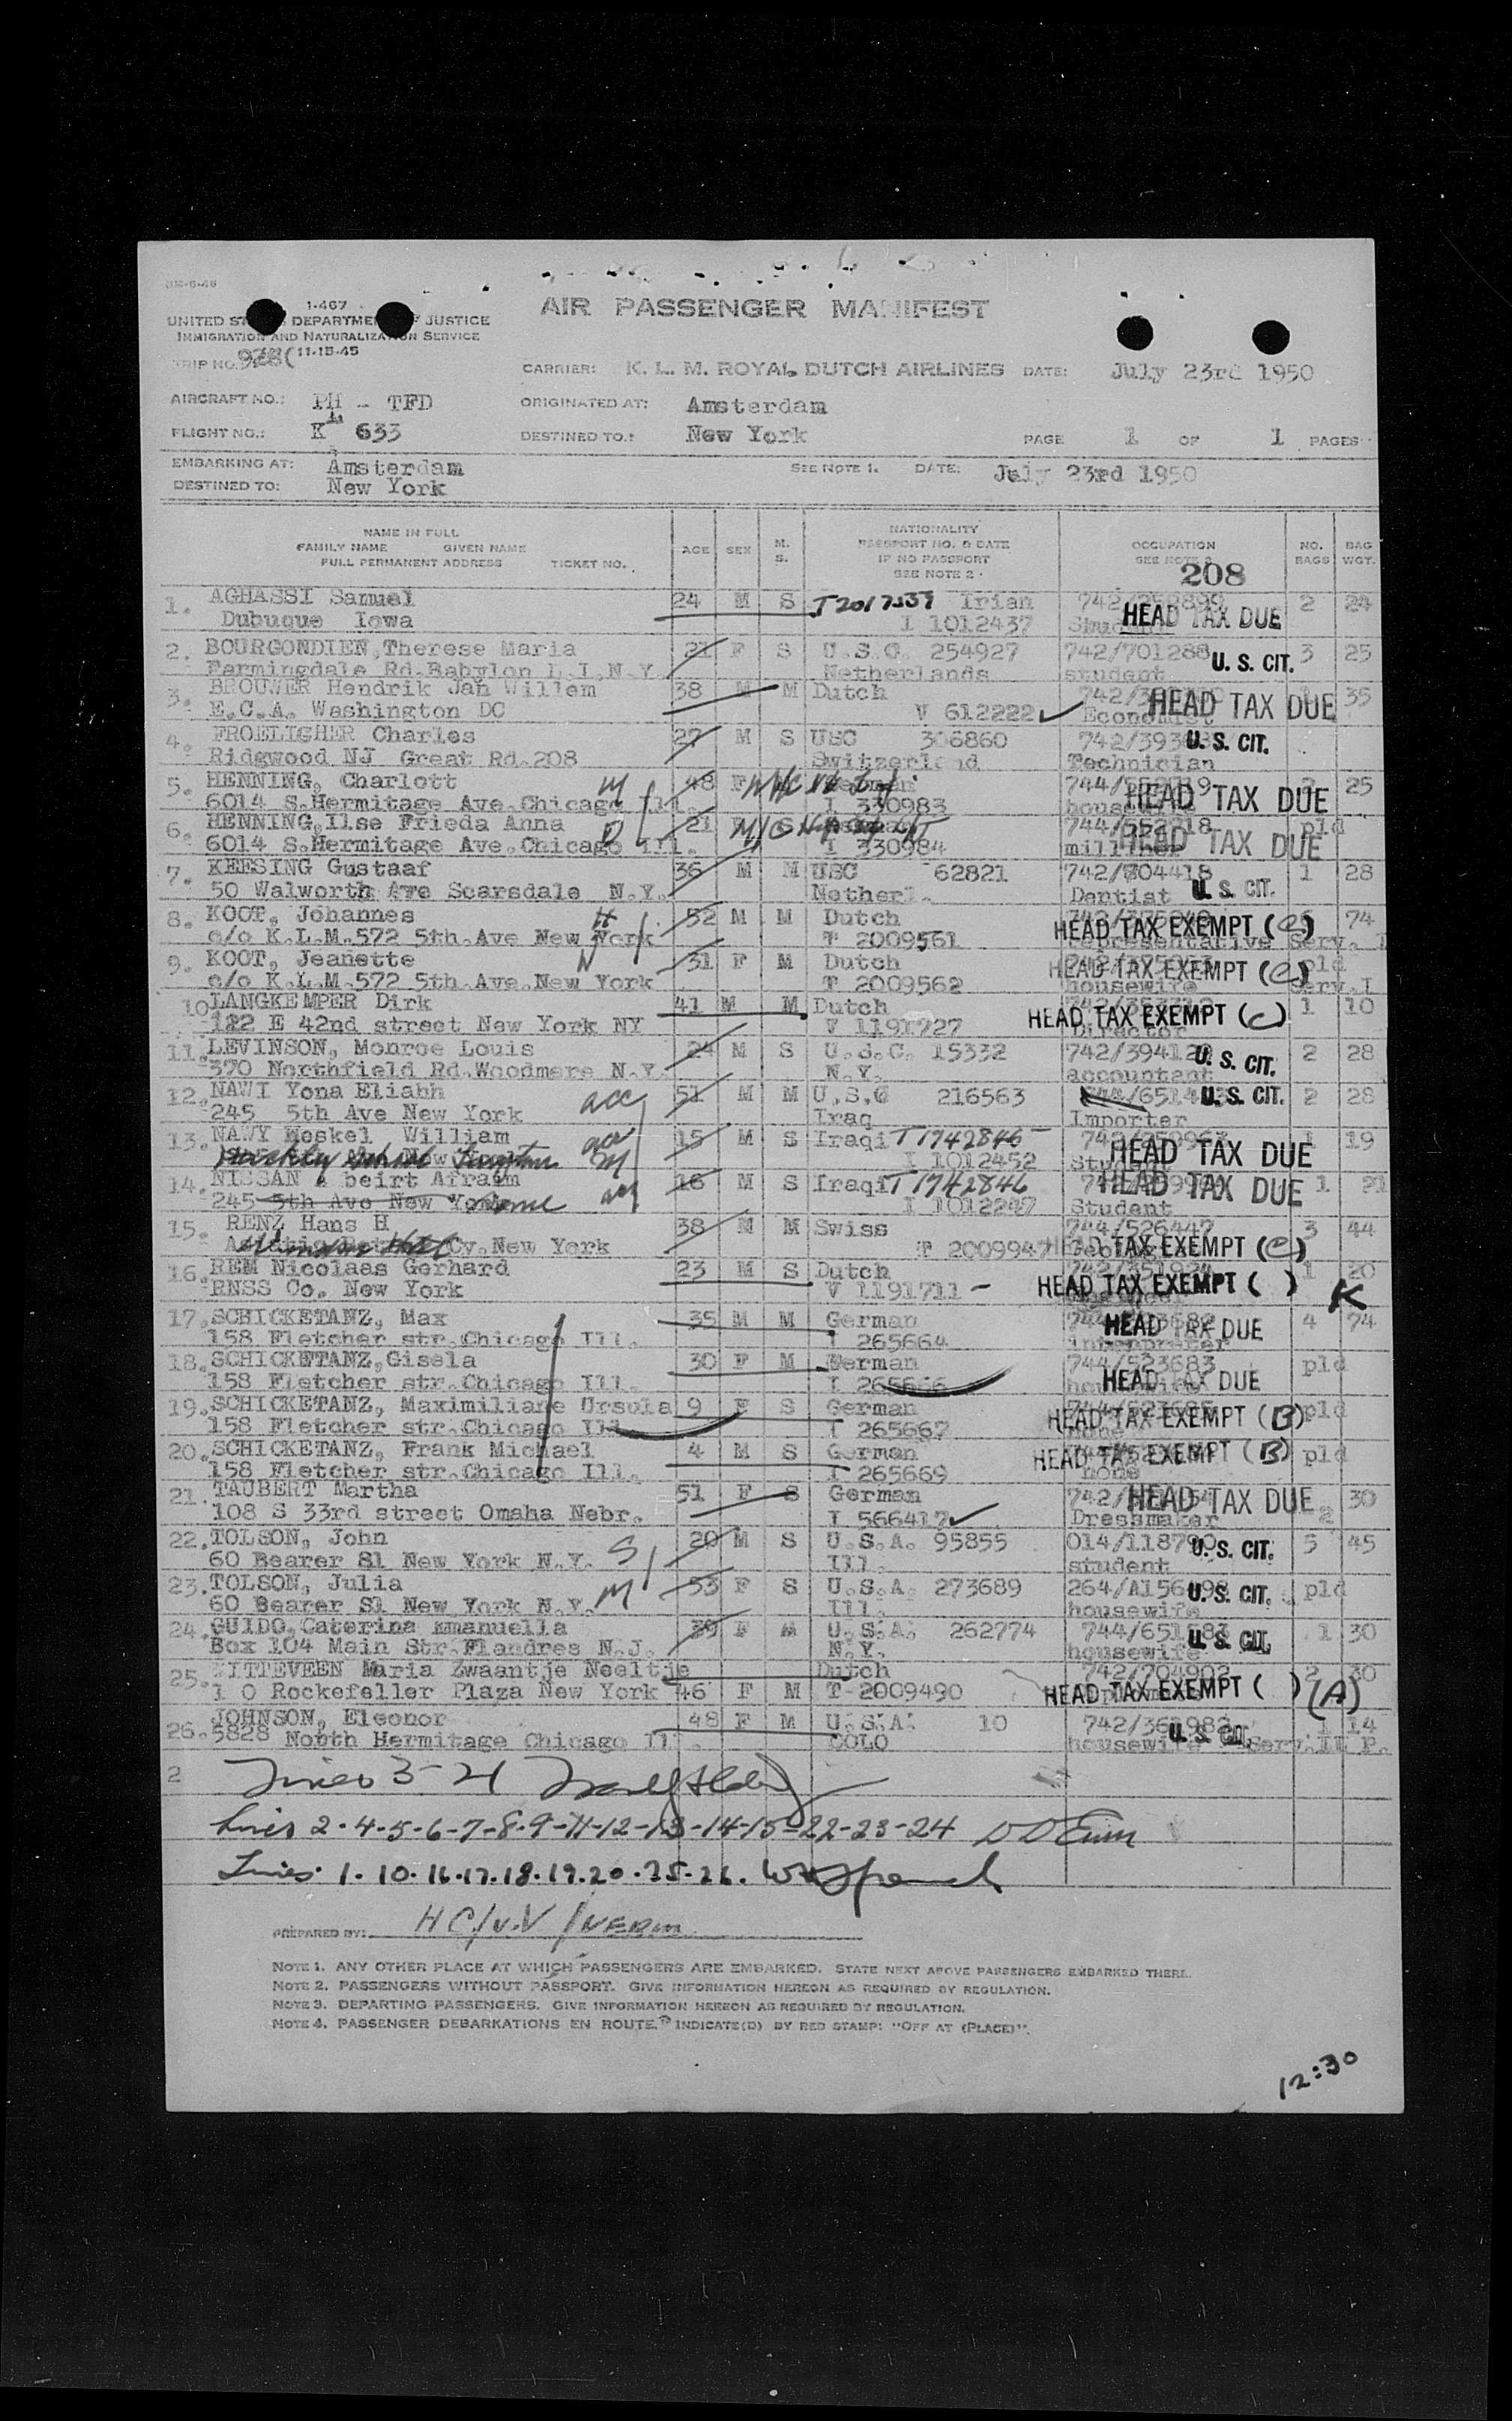 I-467
AIR PASSENGER MANIFEST
UNITED ST DEPARTME F JUSTICE
IMMIGRATION AND NATURALIZATION SERVICE
TRIP NO. 928( 11-15-45
CARRIER: K. L. M. ROYAL DUTCH AIRLINES DATE: July 23rd 1950
AIRCRAFT NO.: PH - TFD ORIGINATED AT: Amsterdam
FLIGHT NO.: K L 633 DESTINED TO: New York PAGE 1 OF 1 PAGES
EMBARKING AT: Amsterdam SEE NOTE 1. DATE: July 23rd 1950
DESTINED TO: New York
NAME IN FULL
FAMILY NAME GIVEN NAME
FULL PERMANENT ADDRESS TICKET NO.
AGE SEX M. S.
NATIONALITY
PASSPORT NO. & DATE
IF NO PASSPORT
SEE NOTE 2
OCCUPATION
SEE NOTE
NO. BAGS
BAG WGT.
208
1. AGHASSI Samuel 24 M S T2017537 Irian 2 24
Dubuque Iowa I 1012437 Student HEAD TAX DUE
2. BOURGONDIEN,Therese Maria 21 F S U.S.C. 254927 742/701288 U. S. CIT. 3 25
Farmingdale Rd.Babylon L.I.N.Y Netherlands student
3. BROUWER Hendrik Jan Willem 38 M M Dutch HEAD TAX DUE 35
E.C.A. Washington DC V 612222 Economist
4. FROELIGHER Charles 27 M S USC 306860 U. S. CIT.
Ridgwood NJ Great Rd.208 Switzerland Technician
5. HENNING, Charlott M 48 F HEAD TAX DUE 25
6014 S.Hermitage Ave.Chicago Ill. I 330983
6. HENNING,Ilse Frieda Anna D 21 HEAD TAX DUE pld
6014 S.Hermitage Ave.Chicago Ill. I 330984
7. KEESING Gustaaf 36 M M USC 62821 742/704418 1 28
50 Walworth Ave Scarsdale N.Y. Netherl. Dentist U. S. CIT.
8. KOOT, Johannes H 52 M M Dutch HEAD TAX EXEMPT (C) 74
c/o K.L.M.572 5th.Ave New York T 2009561 representative Serv.
9. KOOT, Jeanette 31 F M Dutch HEAD TAX EXEMPT (C) pld
c/o K.L.M.572 5th.Ave.New York T 2009562 housewife Serv.
10. LANGKEMPER Dirk 41 M M Dutch HEAD TAX EXEMPT (C) 1 10
122 E 42nd street New York NY V 1191727 Director
11. LEVINSON, Monroe Louis 24 M S U.S.C. 15332 U. S. CIT. 2 28
570 Northfield Rd.Woodmere N.Y. N.Y. accountant
12. NAWI Yona Eliahh acc 51 M M U.S.C 216563 U. S. CIT. 2 28
245 5th Ave New York Iraq Importer
13. NAWY Meskel William 15 M S Iraqi T1742845 HEAD TAX DUE 1 19
I 1012452 Student
14. NISSAN A beirt Afraim 16 M S Iraqi T1742846 HEAD TAX DUE 1 21
245 5th Ave New York I 1012247 Student
15. RENZ Hans H 38 M M Swiss 744/526447 3 44
Cy.New York T 2009947 HEAD TAX EXEMPT (C)
16. REM Nicolaas Gerhard 23 M S Dutch HEAD TAX EXEMPT ( ) K 1 20
RNSS Co. New York V 1191711
17. SCHICKETANZ, Max 35 M M German HEAD TAX DUE 4 74
158 Fletcher str.Chicago Ill. I 265664 interpreter
18. SCHICKETANZ,Gisela 30 F M German 744/523683 pld
158 Fletcher str.Chicago Ill. I 265666 HEAD TAX DUE
19. SCHICKETANZ, Maximiliane Ursula 9 F S German HEAD TAX EXEMPT (B) pld
158 Fletcher str.Chicago Ill. I 265667 none
20. SCHICKETANZ, Frank Michael 4 M S German HEAD TAX EXEMPT (B) pld
158 Fletcher str.Chicago Ill. I 265669 none
21. TAUBERT Martha 51 F S German HEAD TAX DUE 2 30
108 S 33rd street Omaha Nebr. I 566417 Dressmaker
22. TOLSON, John S 20 M S U.S.A. 95855 U. S. CIT. 45
60 Bearer Sl New York N.Y. Ill. student
23. TOLSON, Julia M 53 F S U.S.A. 273689 U. S. CIT. pld
60 Bearer Sl New York N.Y. Ill. housewife
24. GUIDO,Caterina Emanuella 39 F M U.S.A. 262774 U. S. CIT. 1 30
Box 104 Main Str.Flandres N.J. N.Y. housewife
25. WITTEVEEN Maria Zwaantje Neeltje Dutch 742/704902 2 30
1 0 Rockefeller Plaza New York 46 F M T-2009490 HEAD TAX EXEMPT ( ) (A)
26. JOHNSON, Eleonor 48 F M U.S.A. 10 U. S. CIT. 1 14
5828 North Hermitage Chicago Ill. COLO housewife Serv.II P.
2 Lines 3-21
Lines 2-4-5-6-7-8-9-11-12-13-14-15-22-23-24
Lines 1.10.16.17.18.19.20.25.26.
PREPARED BY:
NOTE 1. ANY OTHER PLACE AT WHICH PASSENGERS ARE EMBARKED. STATE NEXT ABOVE PASSENGERS EMBARKED THERE.
NOTE 2. PASSENGERS WITHOUT PASSPORT. GIVE INFORMATION HEREON AS REQUIRED BY REGULATION.
NOTE 3. DEPARTING PASSENGERS. GIVE INFORMATION HEREON AS REQUIRED BY REGULATION.
NOTE 4. PASSENGER DEBARKATIONS EN ROUTE. INDICATE(D) BY RED STAMP: "OFF AT (PLACE)".
12:30